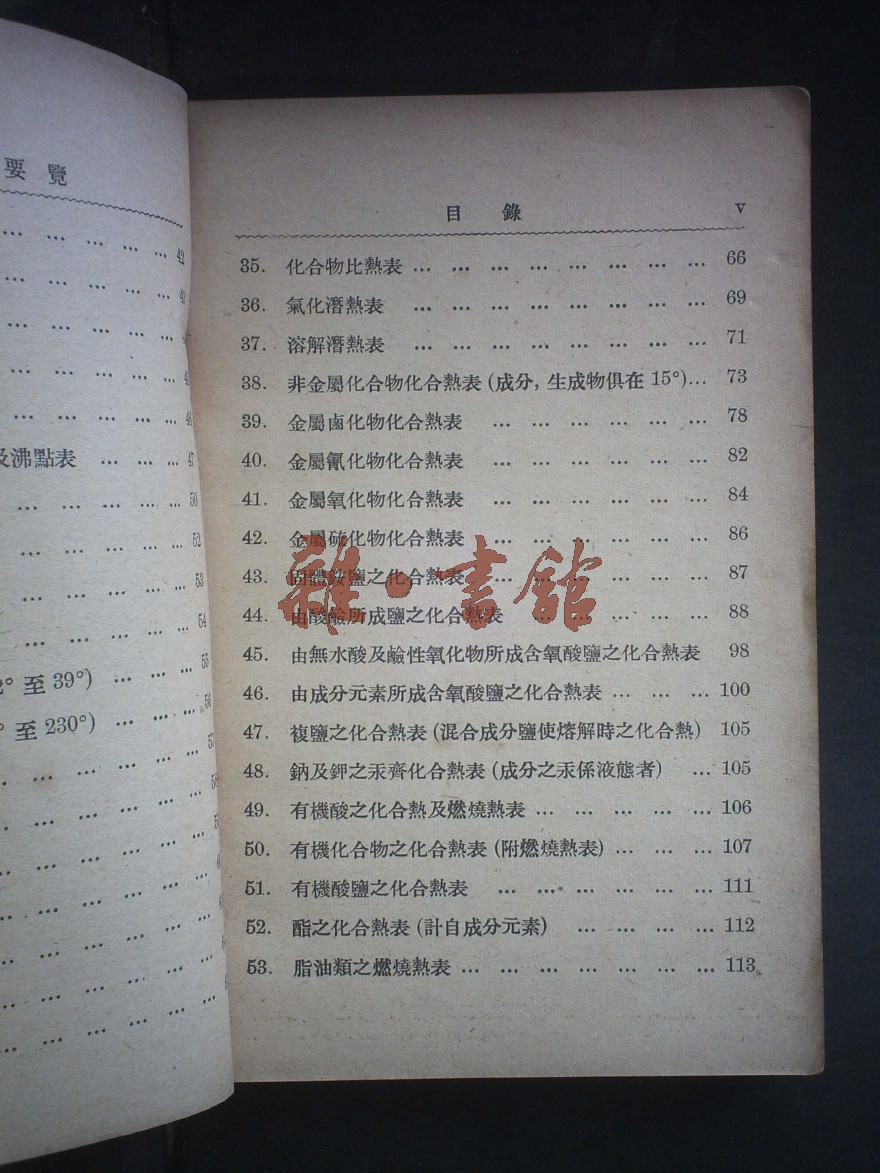 要覽
… … … … … 42
… … … … … 43
… … … … …
… … … … … 45
… … … … … 46
及沸點表 … … … 47
… … … … … 50
… … … … … 52
… … … … … 53
… … … … … 54
2° 至 39°) … … … 55
° 至 230°) … … … 56
… … … … … 57
… … … … … 58
目錄 v
35. 化合物比熱表 … … … … … … … … 66
36. 氣化潛熱表 … … … … … … … … 69
37. 溶解潛熱表 … … … … … … … … 71
38. 非金屬化合物化合熱表 (成分, 生成物俱在 15°)… 73
39. 金屬鹵化物化合熱表 … … … … … … 78
40. 金屬氰化物化合熱表 … … … … … … 82
41. 金屬氧化物化合熱表 … … … … … … 84
42. 金屬硫化物化合熱表 … … … … … … 86
43. 固體銨鹽之化合熱表 … … … … … … 87
44. 由酸鹼所成鹽之化合熱表 … … … … … 88
45. 由無水酸及鹼性氧化物所成含氧酸鹽之化合熱表 98
46. 由成分元素所成含氧酸鹽之化合熱表 … … … 100
47. 複鹽之化合熱表 (混合成分鹽使熔解時之化合熱) 105
48. 鈉及鉀之汞齊化合熱表 (成分之汞係液態者) … 105
49. 有機酸之化合熱及燃燒熱表 … … … … … 106
50. 有機化合物之化合熱表 (附燃燒熱表) … … … 107
51. 有機酸鹽之化合熱表 … … … … … … 111
52. 酯之化合熱表 (計自成分元素) … … … … 112
53. 脂油類之燃燒熱表 … … … … … … … 113
雜·書館